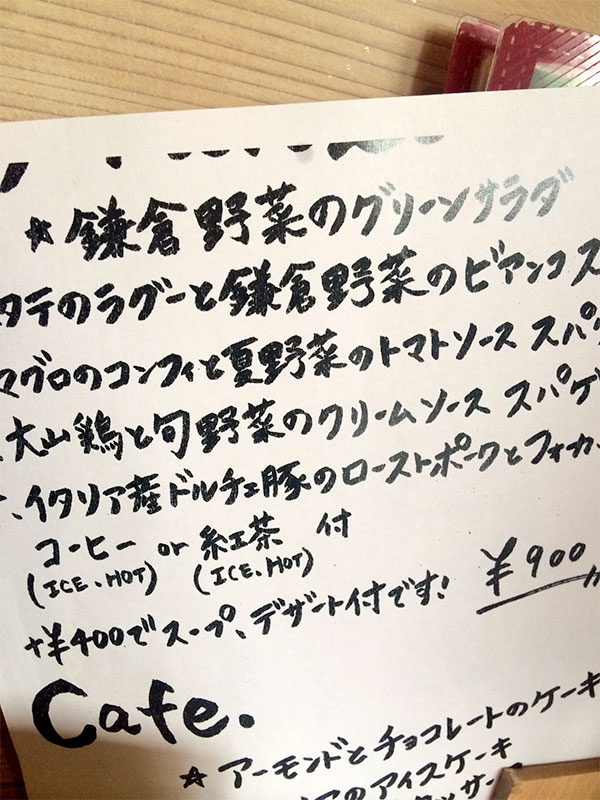 ☆鎌倉野菜のグリーンサラダ
タテのラグーと鎌倉野菜のビアンコス
マグロのコンフィと夏野菜のトマトソース スパゲ
大山鶏と旬野菜のクリームソース スパゲ
イタリア産ドルチェ豚のローストポークとフォカ
コーヒー or 紅茶 付
(ICE、HOT) (ICE、HOT)
¥900
+¥400でスープ、デザート付です!
Cafe.
☆アーモンドとチョコレートのケーキ
アのアイスケーキ